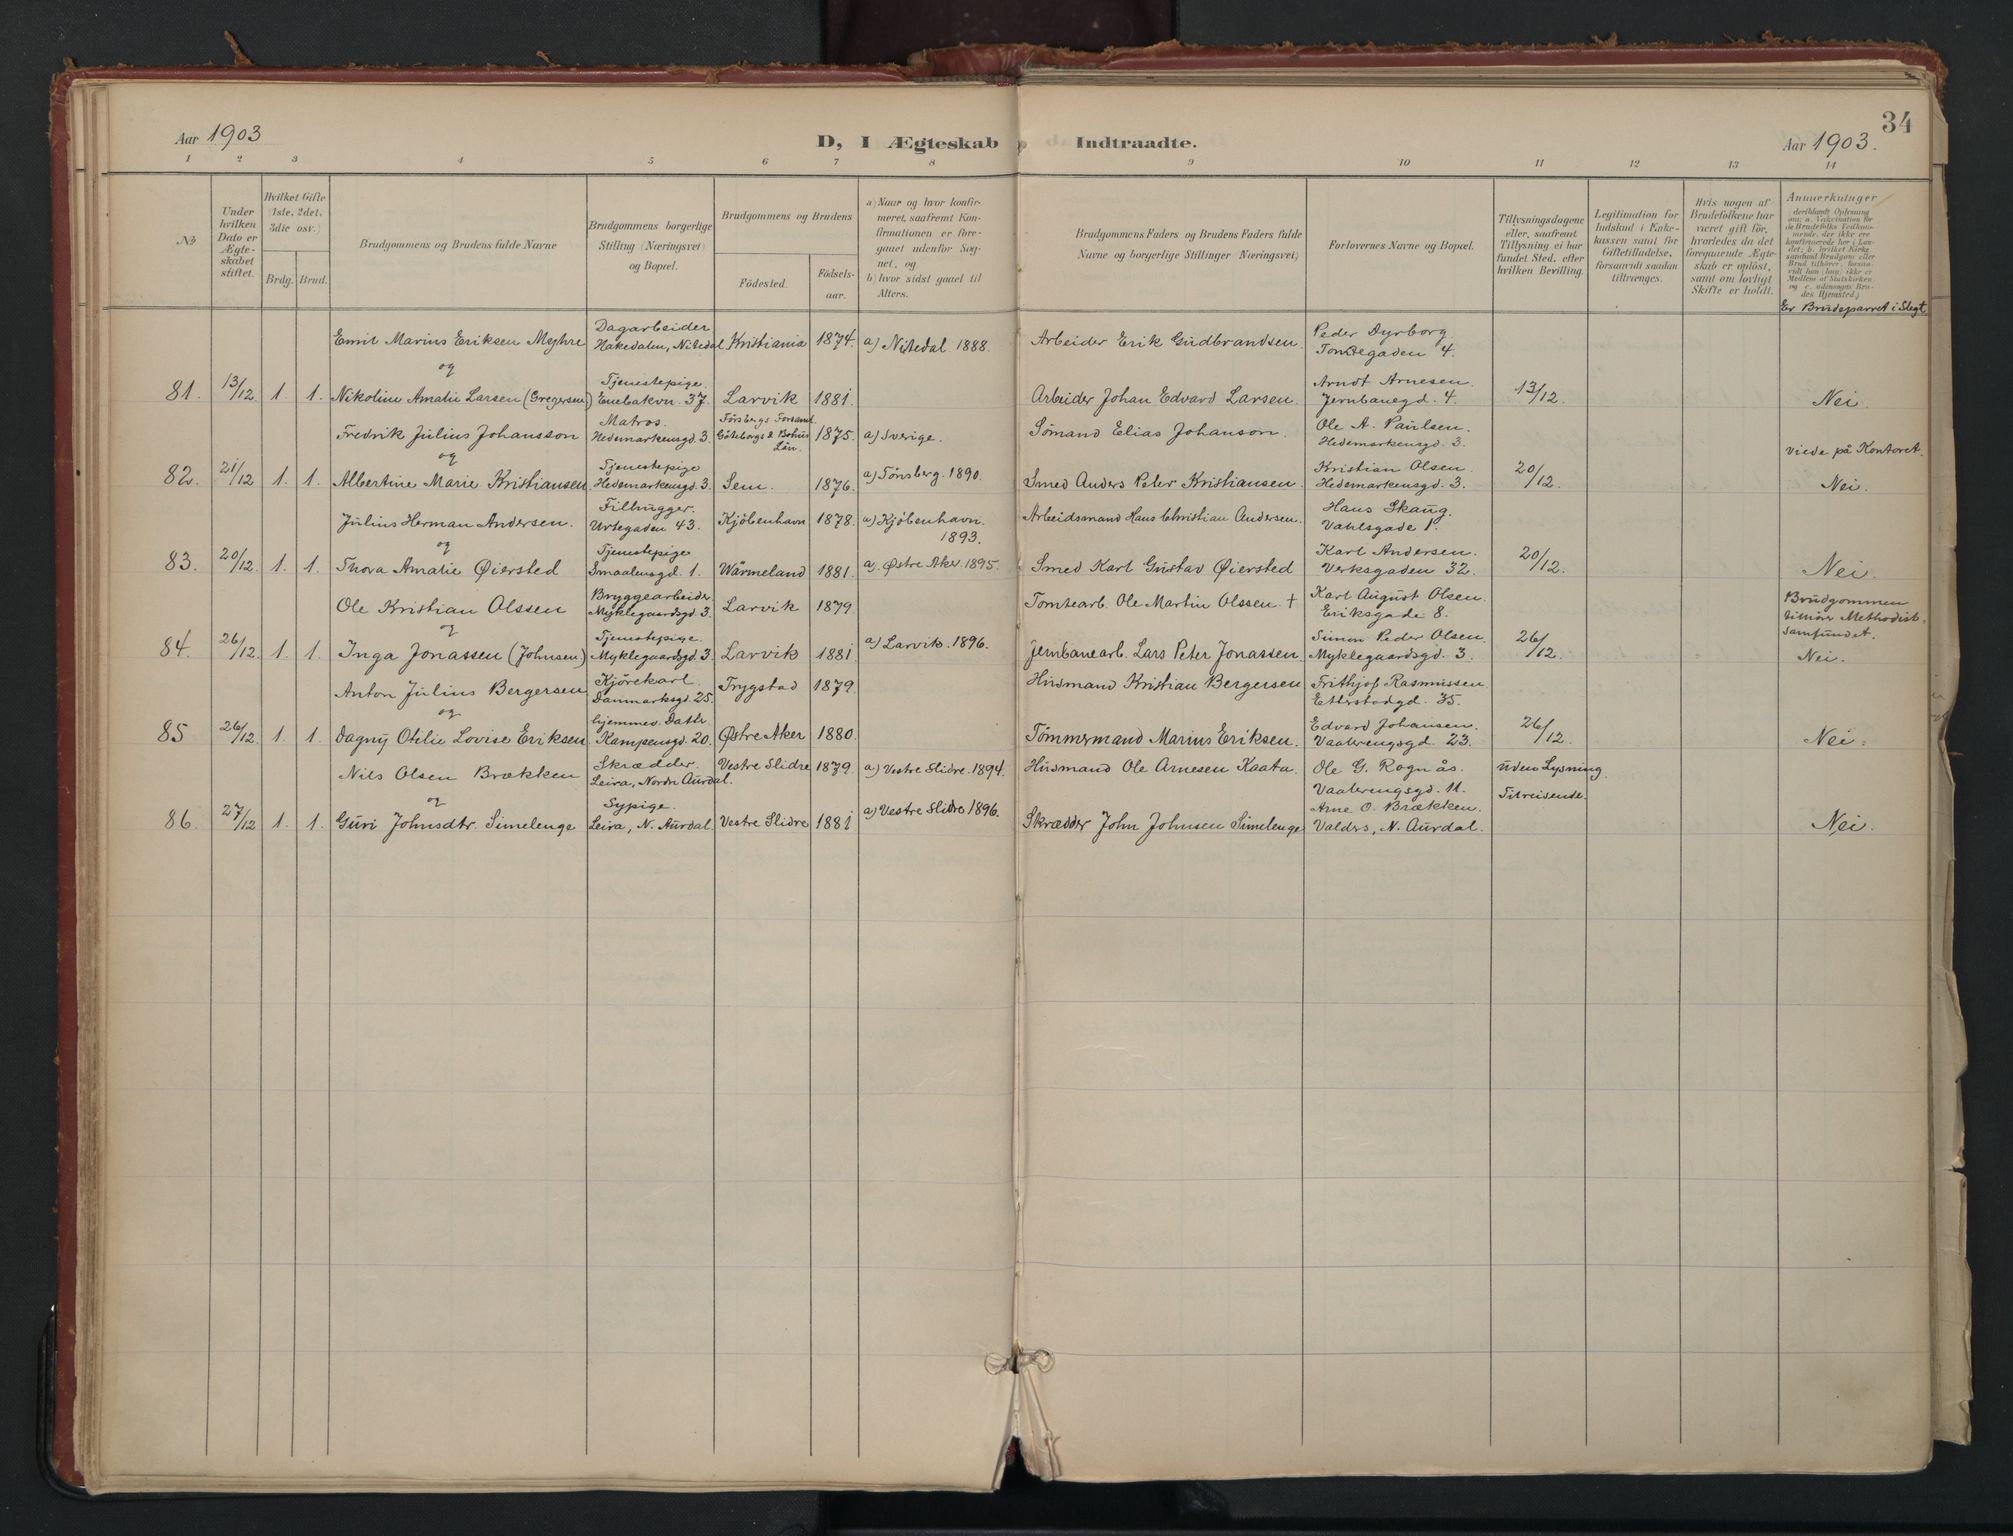 34
Aar 1903
D, I Ægteskab Indtraadte.
Aar 1903.
1 2 3 4 5 6 7 8 9 10 11 12 13 14
No
Under hvilken Dato er Ægteskabet stiftet.
Hvilket Gifte (1ste, 2det, 3die osv.)
Brdg. Brud.
Brudgommens og Brudens fulde Navne
Brudgommens borgerlige Stilling (Næringsvei) og Bopæl.
Brudgommens og Brudens
Födested.
Födselsaar.
a) Naar og hvor konfirmeret, saafremt Konfirmationen er foregaaet udenfor Sognet, og
b) hvor sidst gaaet til Alters.
Brudgommens Faders og Brudens Faders fulde Navne og borgerlige Stillinger Næringsvei)
Forlovernes Navne og Bopæl.
Tillysningsdagene eller, saafremt Tillysning ei har fundet Sted, efter hvilken Bevilling.
Legitimation for Indskud i Enkekassen samt for Giftetilladelse, forsaavidt saadan tiltrænges.
Hvis nogen af Brudefolkene har været gift för, hvorledes da det foregaaende Ægteskab er oplöst, samt om lovligt Skifte er holdt.
Anmerkninger
Er Brudeparret i Slegt
Emil Marius Eriksen Myhre Dagarbeider Hakedalen, Nitedal Kristiania 1874. a) Nitedal 1888. Arbeider Erik Gudbrandsen. Peder Dyrborg Tomtegaden 4.
og
81. 13/12 1. 1. Nikoline Amalie Larsen (Gregersen) Tjenestepige. Enebakvn. 37. Larvik 1881. Arbeider Johan Edvard Larsen Arndt Arnesen. Jernbanegd. 4. 13/12. Nei.
Fredrik Julius Johansson Matros. Hedemarkensgd. 3. Göteborgs & Bohus Län. 1875. a) Sverige. Sömand Elias Johanson. Ole A. Paulsen. Hedemarkensgd. 3.
og
viede på Kontoret.
82. 21/12 1. 1. Albertine Marie Kristiansen Tjenestepige Hedemarkensgd. 3. Sem. 1876. a) Tönsberg. 1890. Smed Anders Peter Kristiansen Kristian Olsen. Hedemarkensgd. 3. 20/12. Nei.
Julius Herman Andersen. Filhugger. Urtegaden 43. Kjöbenhavn 1878. a) Kjöbenhavn. 1893. Arbeidsmand Hans Christian Andersen. Hans Skaug. Vahlsgade 1.
og
83. 20/12. 1. 1. Thora Amalie Øiersted Tjenestepige Smaalensgd. 1. Wärmeland 1881. a). Østre Aker 1895. Smed Karl Gustav Øiersted Karl Andersen. Verksgaden 32. 20/12. Nei.
Ole Kristian Olssen Bryggearbeider. Myklegaardsgd. 3. Larvik 1879. Tomtearb. Ole Martin Olssen + Karl August Olsen. Eriksgade 8. Brudgommen tilhörer Methodistsamfundet.
og
84. 26/12. 1. 1. Inga Jonassen (Johnsen) Tjenestepige. Myklegaardsgd. 3 Larvik 1881 a) Larvik. 1896. Jernbanearb. Lars Peter Jonassen Simon Peder Olsen Myklegaardsgd. 3. 26/12. Nei.
Anton Julius Bergersen Kjörekarl. Danmarksgd. 25. Trygstad 1879. Husmand Kristian Bergersen Frithjof Rasmussen Etterstadgd. 35.
og
85 26/12. 1. 1. Dagny Otilie Lovise Eriksen hjemmev. Datter. Kampensgd. 20. Østre Aker 1880. Tömmermand Marius Eriksen. Edvard Johansen. Vaalerengsgd. 23. 26/12. Nei.
Nils Olsen Brækken Skrædder. Leira, Nordr. Aurdal. Vestre Slidre 1879. a) Vestre Slidre. 1894. Husmand Ole Arnesen Kaata. Ole G. Rognås. Vaalerengsgd. 11. uden Lysning. Tilreisende.
og
86. 27/12 1. 1. Guri Johnsdtr. Simelenge Sypige. Leira, N. Aurdal. Vestre Slidre 1881 a) Vestre Slidre 1896. Skrædder John Johnsen Simelenge Arne O. Brækken. Valders, N. Aurdal. Nei.